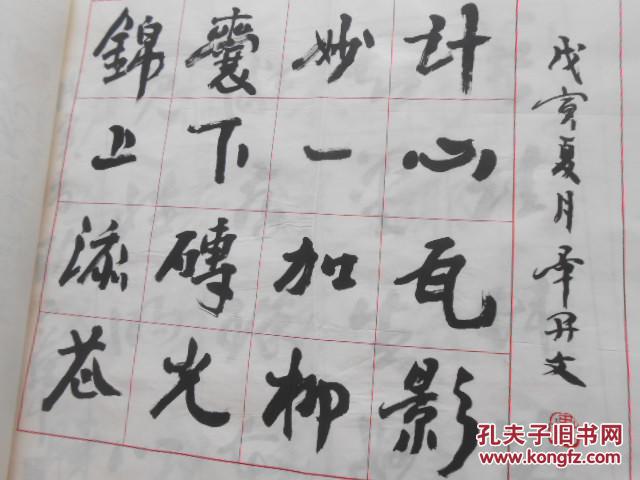 錦囊妙计
上下一心
添磚加瓦
花光柳影
戊寅夏月
孔夫子旧书网
www.kongfz.com